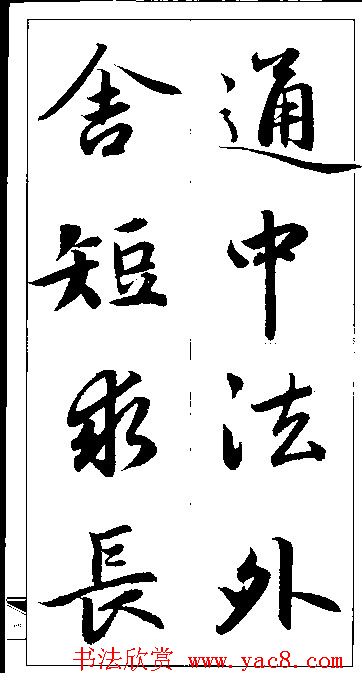 通中法外
舍短求長
书法欣赏 www.yac8.com